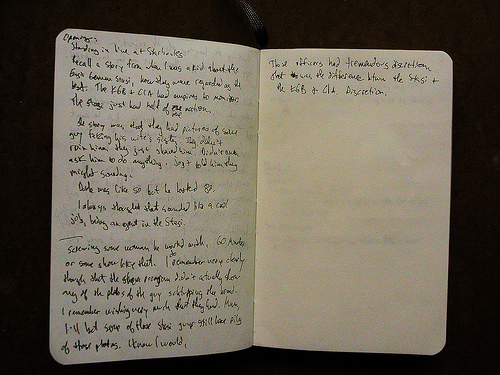 Opener:
Standing in line at Starbucks
Recall a story from when I was a kid about the
East German Stasi, how they were regarded as the
best. The KGB + CIA had empires to monitor
The Stasi just had half of one nation.
The story was that they had pictures of some
guy fucking his wife's sister. They didn't
ruin him, they just showed him. Didn't even
ask him to do anything. Just told him they
might someday.
Dude was like 50 but he looked 80.
I always thought that sounded like a cool
job, being an agent in the Stasi.
screwing some woman he worked with. 60 Minutes
or some show like that. I do remember very clearly
though that the program didn't actually show
any of the photos of the guy schtupping the
I remember wishing very much that they had. Man,
I'll bet some of those Stasi guys still have piles
of those photos. I know I would.
Those officers had tremendous discretion
that was the difference btwn the Stasi +
the KGB + CIA. Discretion.